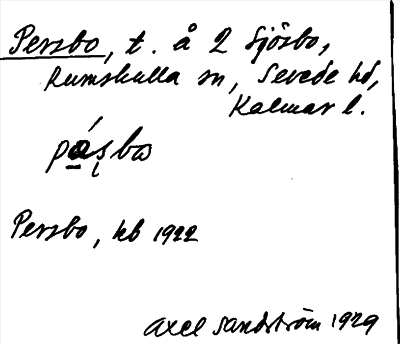 Persbo, t. å 2 Sjösbo,
Rumskulla sn, Sevede hd,
Kalmar l.
pásbω
Persbo, hb 1922
Axel Sandström 1929